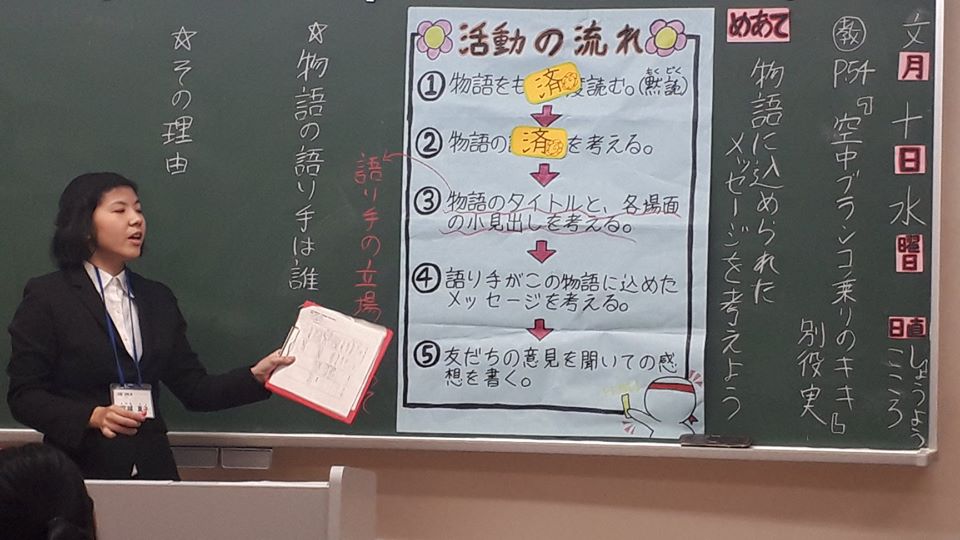 文月十日水曜日
日直 しょうよう
こころ
教 P.54『空中ブランコ乗りのキキ』
別役実
めあて
物語に込められた
メッセージを考えよう
活動の流れ
①物語をも済度読む。(黙読)
もくどく
②物語の済を考える。
③物語のタイトルと、各場面
の小見出しを考える。
④語り手がこの物語に込めた
メッセージを考える。
⑤友だちの意見を聞いての感
想を書く。
語り手の立場
て
☆物語の語り手は誰
☆その理由